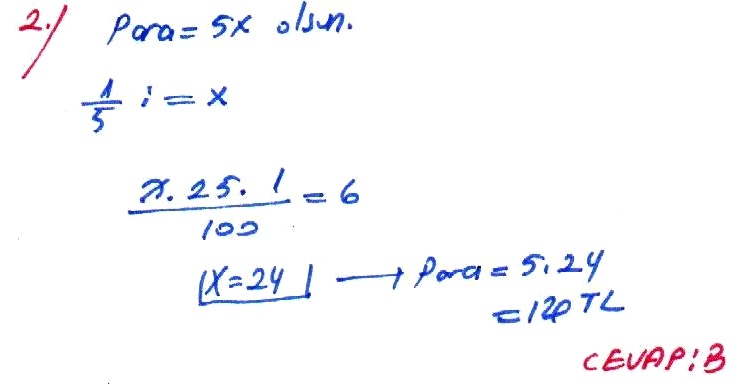 2.) Para = 5x olsun.
1/5 i = x
x. 25. 1 / 100 = 6
x = 24 → Para = 5.24
= 120 TL
CEVAP: B